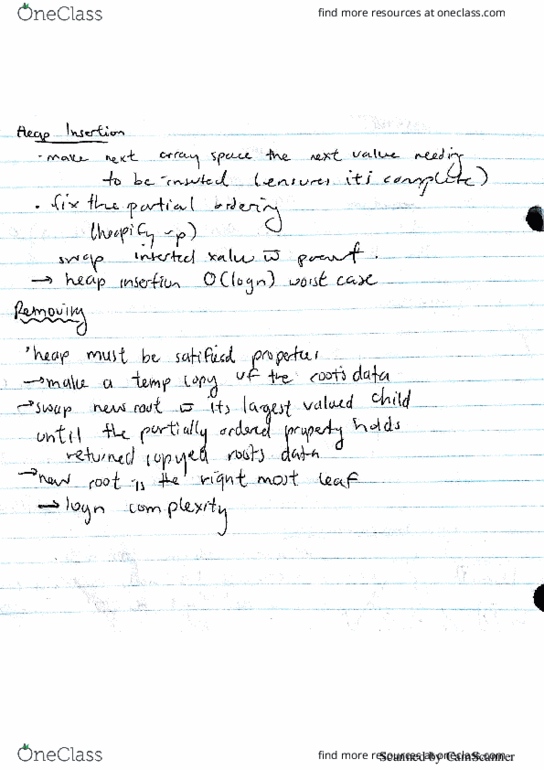 OneClass find more resources at oneclass.com
Heap Insertion
· make next array space the next value needing
to be inserted (ensures its complete)
· fix the partial ordering
(heapify -p)
swap inserted value w̅ parent.
→ heap insertion O(logn) worst case
Removing
· heap must be satifisd properties
→ make a temp copy of the roots data
→ swap new root w̅ its largest valued child
until the partially ordered property holds
returned copyed roots data
→ new root is the right most leaf
→ logn complexity
OneClass find more resources at oneclass.com
Scanned by CamScanner